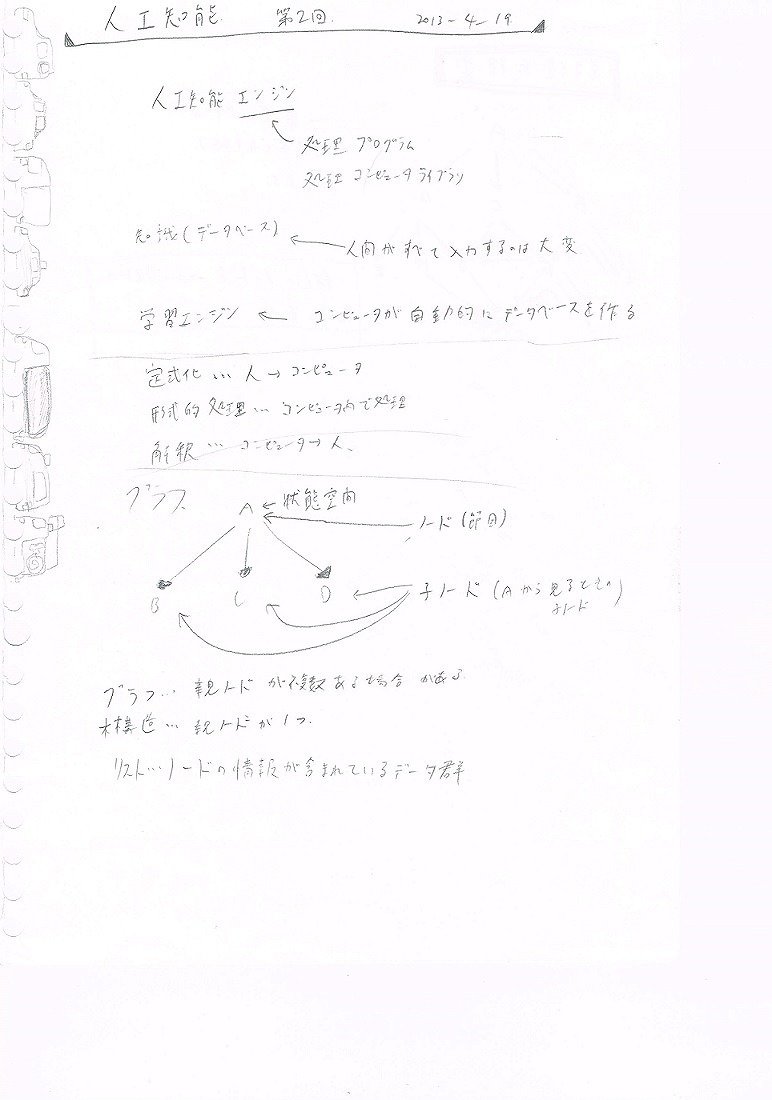 人工知能 第2回. 2013-4-19
人工知能 エンジン
処理 プログラム
処理 コンピュータ ライブラリ
知識(データベース)
人間が すべて 入力するのは 大変
学習エンジン ← コンピュータが 自動的に データベースを作る
定式化 … 人 → コンピュータ
形式的 処理 … コンピュータ内で処理
解釈 … コンピュータ → 人、
グラフ
A ← 状態空間
ノード (節目)
B C D
子ノード (Aから見るとその
子ノード)
グラフ… 親ノードが複数ある場合がある.
木構造 … 親ノードが1つ.
リスト…ノードの情報が含まれているデータ群